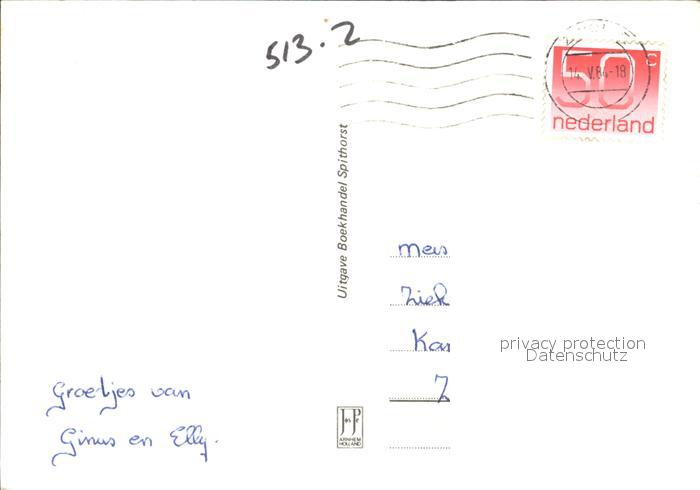 513.2
50 c
14.V.84-18
nederland
Uitgave Boekhandel Spithorst
Meis
Ziek
Kar
Z
privacy protection
Datenschutz
Groetjes van
Ginus en Elly.
JosPé
ARNHEM
HOLLAND